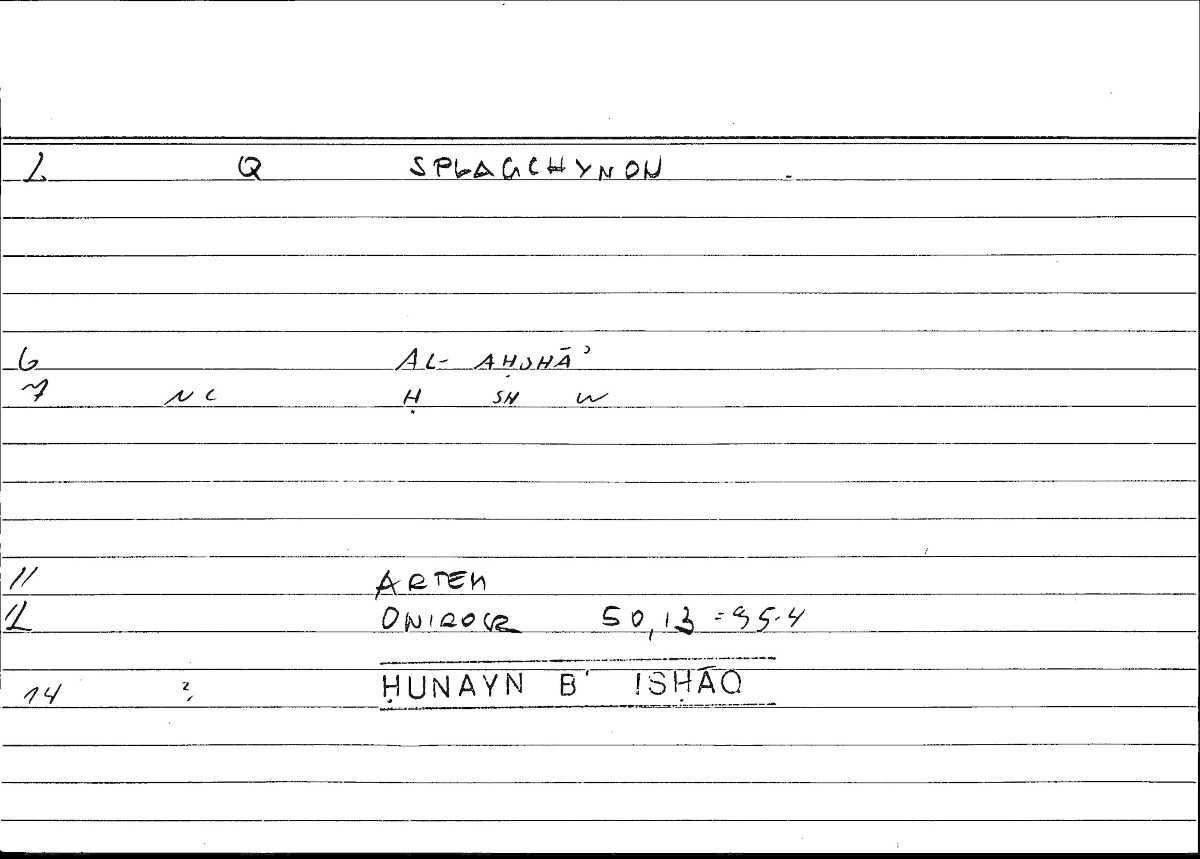 2 Q SPLAGCHYNON
6 AL- AḤSHĀʾ
7 NC Ḥ SH W
11 ARTEM
12 ONIROCR 50,13 = 95.4
14 ?, ḤUNAYN B' ISḤĀQ